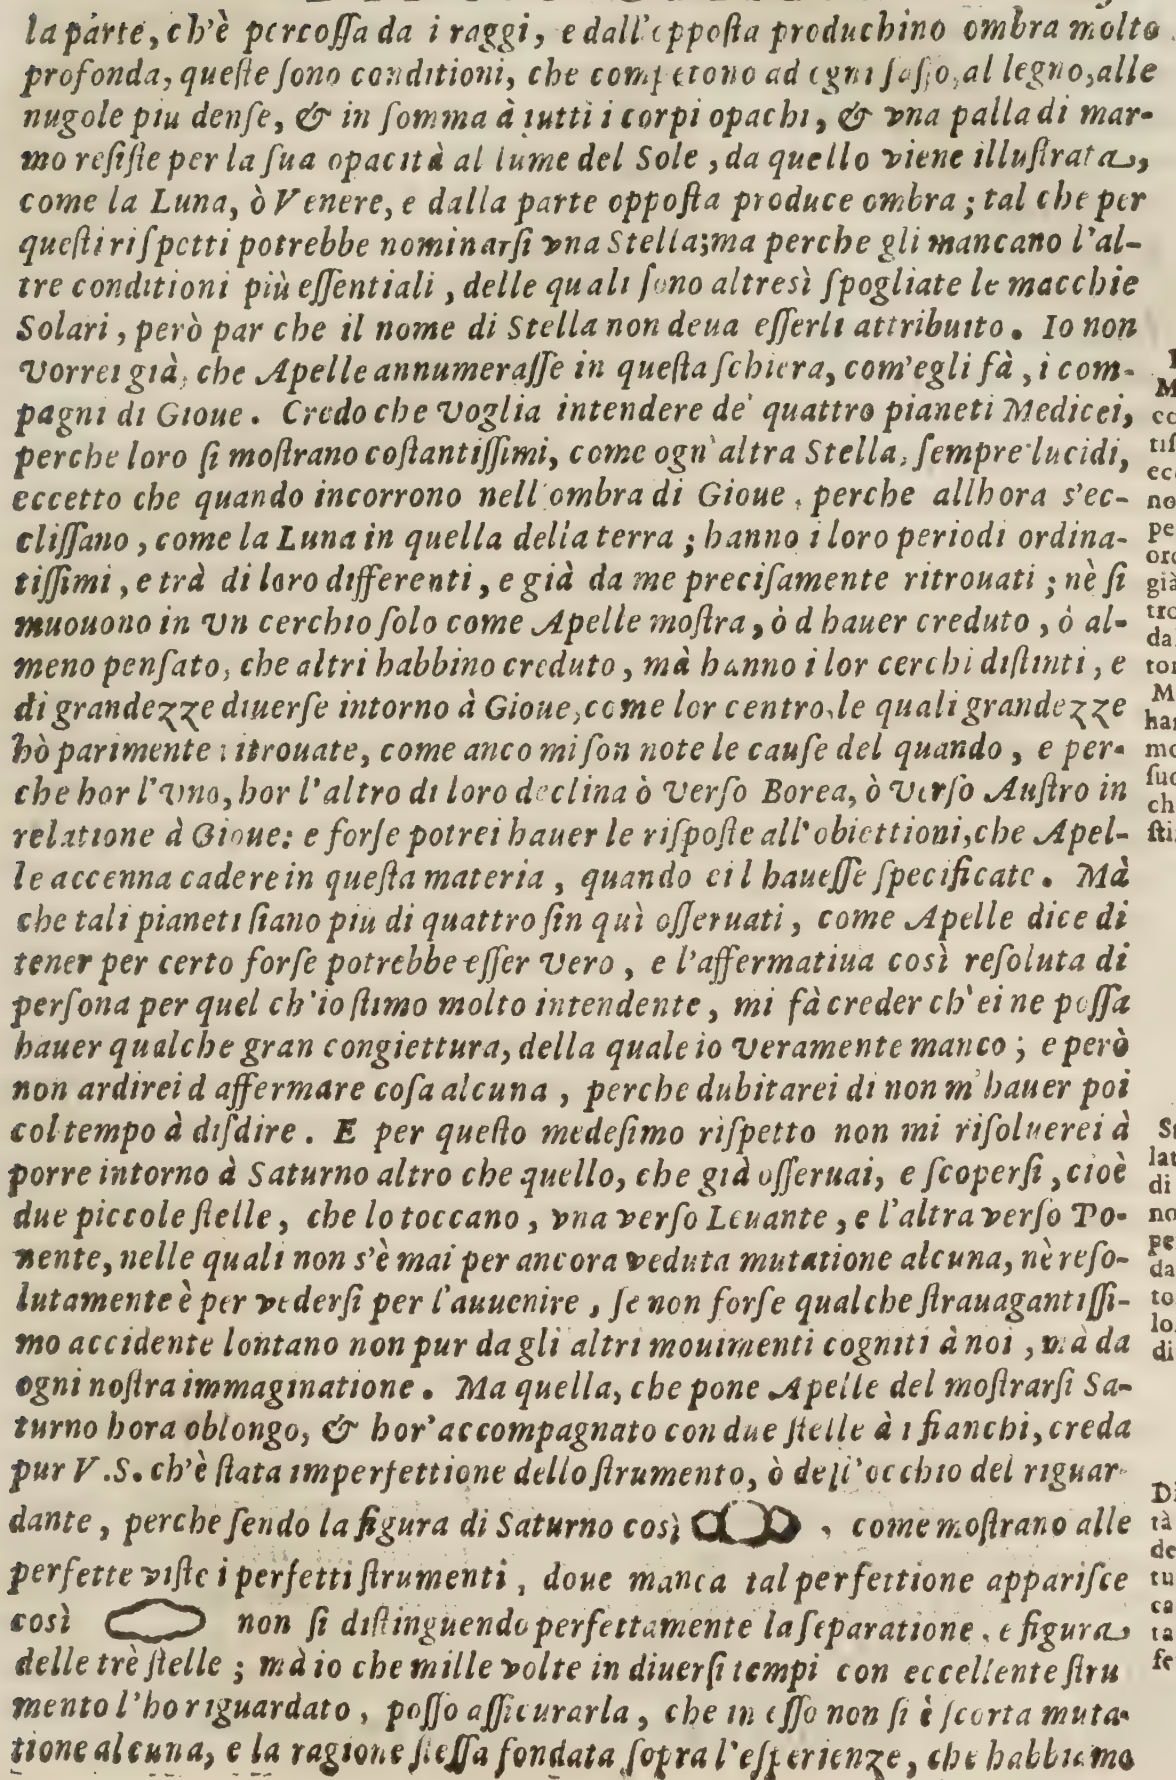 la parte, ch'è percoſſa da i raggi, e dall'oppoſta produchino ombra molto
profonda, queſte ſono conditioni, che competono ad ogni ſaſſo, al legno, alle
nugole piu denſe, & in ſomma à tutti i corpi opachi, & vna palla di mar-
mo reſiſte per la ſua opacità al lume del Sole, da quello viene illuſtrata,
come la Luna, ò Venere, e dalla parte oppoſta produce ombra; tal che per
queſti riſpetti potrebbe nominarſi vna Stella; ma perche gli mancano l'al-
tre conditioni più eſſentiali, delle quali ſono altresì ſpogliate le macchie
Solari, però par che il nome di Stella non deua eſſerli attribuito. Io non
vorrei già, che Apelle annumeraſſe in queſta ſchiera, com'egli fà, i com-
pagni di Gioue. Credo che voglia intendere de' quattro pianeti Medicei,
perche loro ſi moſtrano coſtantiſſimi, come ogn'altra Stella, ſempre lucidi,
eccetto che quando incorrono nell'ombra di Gioue, perche allhora s'ec-
cliſſano, come la Luna in quella della terra; hanno i loro periodi ordina-
tiſſimi, e trà di loro differenti, e già da me preciſamente ritrouati; nè ſi
muouono in vn cerchio ſolo come Apelle moſtra, ò d hauer creduto, ò al-
meno penſato, che altri habbino creduto, mà hanno i lor cerchi diſtinti, e
di grandezze diuerſe intorno à Gioue, come lor centro, le quali grandezze
hò parimente ritrouate, come anco mi ſon note le cauſe del quando, e per-
che hor l'vno, hor l'altro di loro declina ò verſo Borea, ò verſo Auſtro in
relatione à Gioue: e forſe potrei hauer le riſpoſte all'obiettioni, che Apel-
le accenna cadere in queſta materia, quando ei l haueſſe ſpecificate. Mà
che tali pianeti ſiano piu di quattro ſin quì oſſeruati, come Apelle dice di
tener per certo forſe potrebbe eſſer vero, e l'affermatiua così reſoluta di
perſona per quel ch'io ſtimo molto intendente, mi fà creder ch'ei ne poſſa
hauer qualche gran congiettura, della quale io veramente manco; e però
non ardirei d affermare coſa alcuna, perche dubitarei di non m'hauer poi
col tempo à diſdire. E per queſto medeſimo riſpetto non mi riſoluerei à
porre intorno à Saturno altro che quello, che già oſſeruai, e ſcoperſi, cioè
due piccole ſtelle, che lo toccano, vna verſo Leuante, e l'altra verſo Po-
nente, nelle quali non s'è mai per ancora veduta mutatione alcuna, nè reſo-
lutamente è per vederſi per l'auuenire, ſe non forſe qualche ſtrauagantiſſi-
mo accidente lontano non pur da gli altri mouimenti cogniti à noi, mà da
ogni noſtra immaginatione. Ma quella, che pone Apelle del moſtrarſi Sa-
turno hora oblongo, & hor'accompagnato con due ſtelle à i fianchi, creda
pur V.S. ch'è ſtata imperfettione dello ſtrumento, ò dell'occhio del riguar-
dante, perche ſendo la figura di Saturno così , come moſtrano alle
perfette viſte i perfetti ſtrumenti, doue manca tal perfettione appariſce
così non ſi diſtinguendo perfettamente la ſeparatione, e figura
delle trè ſtelle; mà io che mille volte in diuerſi tempi con eccellente ſtru
mento l'ho riguardato, poſſo aſſicurarla, che in eſſo non ſi è ſcorta muta-
tione alcuna, e la ragione ſteſſa fondata ſopra l'eſperienze, che habbiamo